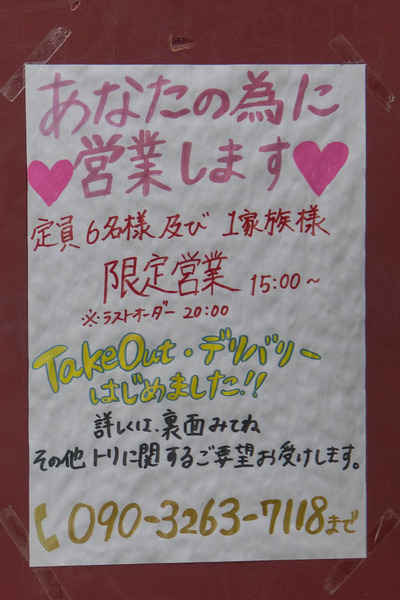 あなたの為に
営業します
定員6名様及び 1家族様
限定営業 15:00~
※ラストオーダー 20:00
TakeOut・デリバリー
はじめました!!
詳しくは、裏面みてね
その他トリに関するご要望お受けします。
090-3263-7118まで